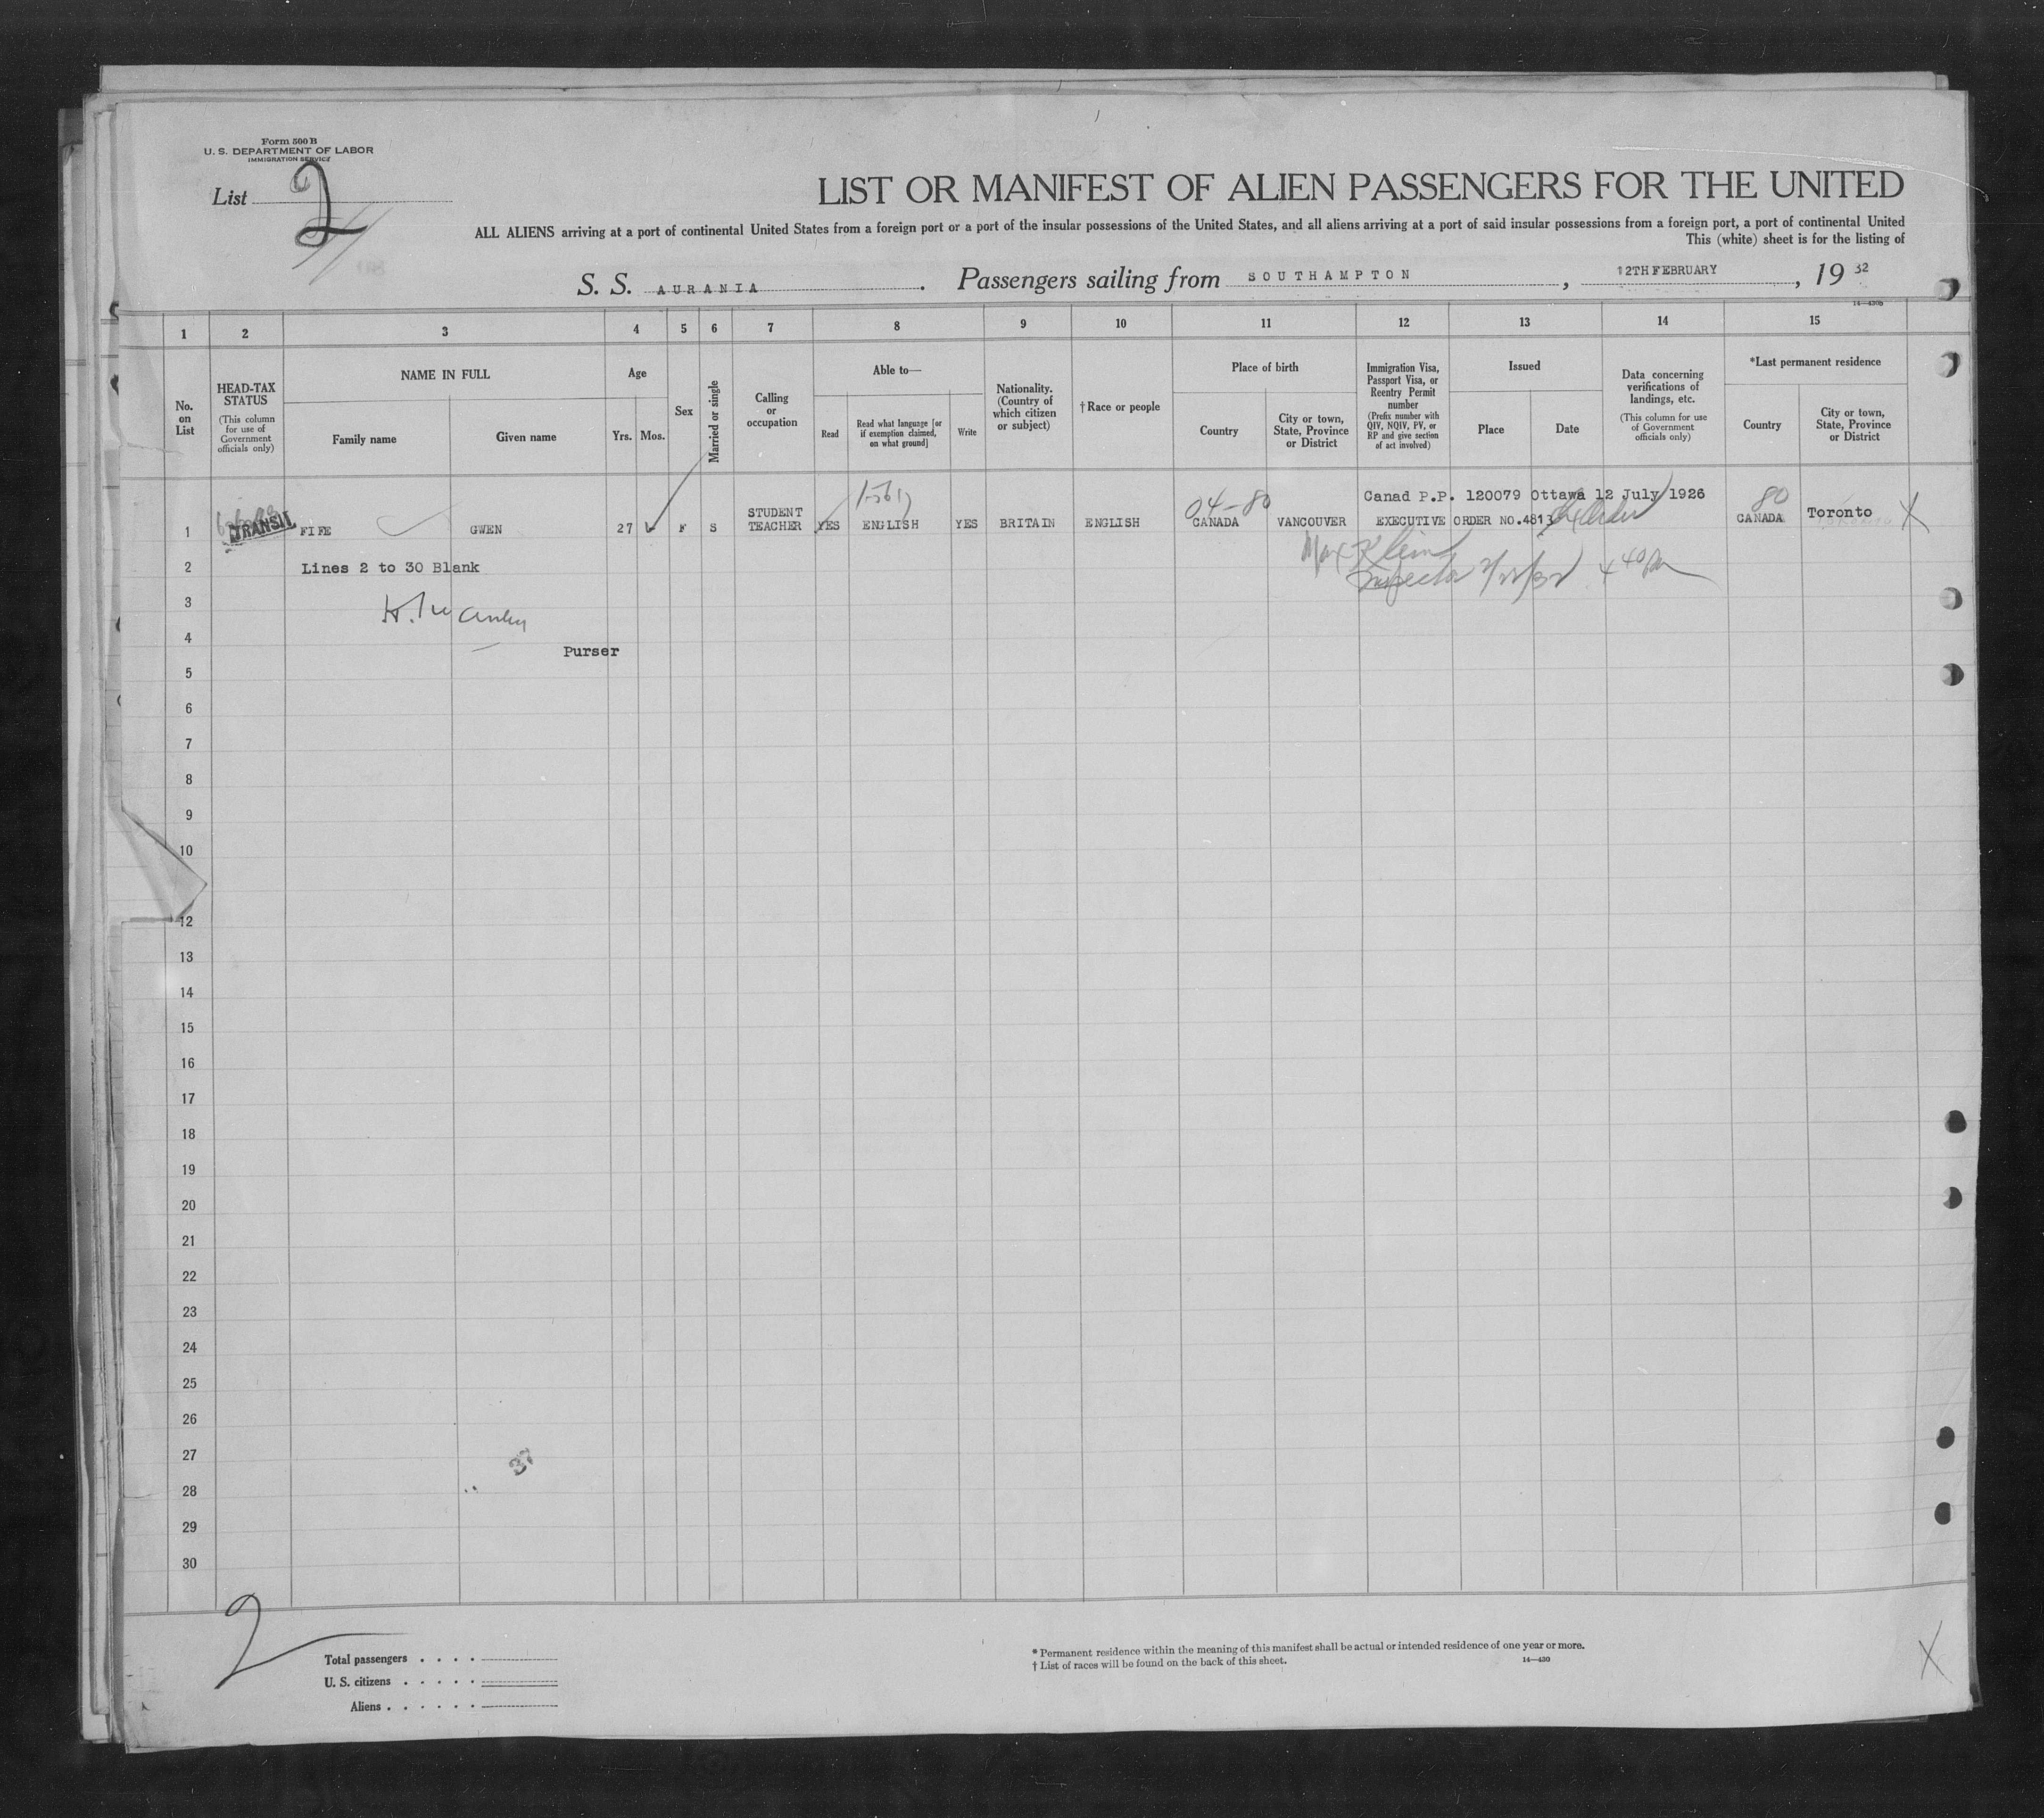 Form 500 B
U. S. DEPARTMENT OF LABOR
IMMIGRATION SERVICE
List 2
LIST OR MANIFEST OF ALIEN PASSENGERS FOR THE UNITED
ALL ALIENS arriving at a port of continental United States from a foreign port or a port of the insular possessions of the United States, and all aliens arriving at a port of said insular possessions from a foreign port, a port of continental United
This (white) sheet is for the listing of
S. S. AURANIA. Passengers sailing from SOUTHAMPTON, 12TH FEBRUARY, 19 32
14—430b
1 2 3 4 5 6 7 8 9 10 11 12 13 14 15
No. on List
HEAD-TAX STATUS
(This column for use of Government officials only)
NAME IN FULL
Family name
Given name
Age
Yrs. Mos.
Sex
Married or single
Calling or occupation
Able to—
Read
Read what language [or if exemption claimed, on what ground]
Write
Nationality. (Country of which citizen or subject)
† Race or people
Place of birth
Country
City or town, State, Province or District
Immigration Visa, Passport Visa, or Reentry Permit number
(Prefix number with QIV, NQIV, PV, or RP and give section of act involved)
Issued
Place
Date
Data concerning verifications of landings, etc.
(This column for use of Government officials only)
*Last permanent residence
Country
City or town, State, Province or District
04-80 Canad P.P. 120079 Ottawa 12 July 1926 80
1 TRANSIT FIFE GWEN 27 F S STUDENT TEACHER YES ENGLISH YES BRITAIN ENGLISH CANADA VANCOUVER EXECUTIVE ORDER NO.4813 CANADA Toronto X
Max Klein
Inspector 2/22/32 4 40 PM
2 Lines 2 to 30 Blank
3
4
Purser
5
6
7
8
9
10
12
13
14
15
16
17
18
19
20
21
22
23
24
25
26
27
37
28
29
30
2
Total passengers
U. S. citizens
Aliens
* Permanent residence within the meaning of this manifest shall be actual or intended residence of one year or more.
† List of races will be found on the back of this sheet.
14—430
X